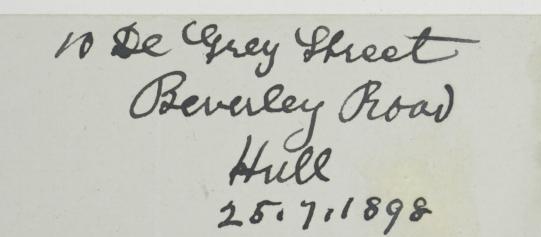 10 De Grey Street
Beverley Road
Hull
25.7.1898